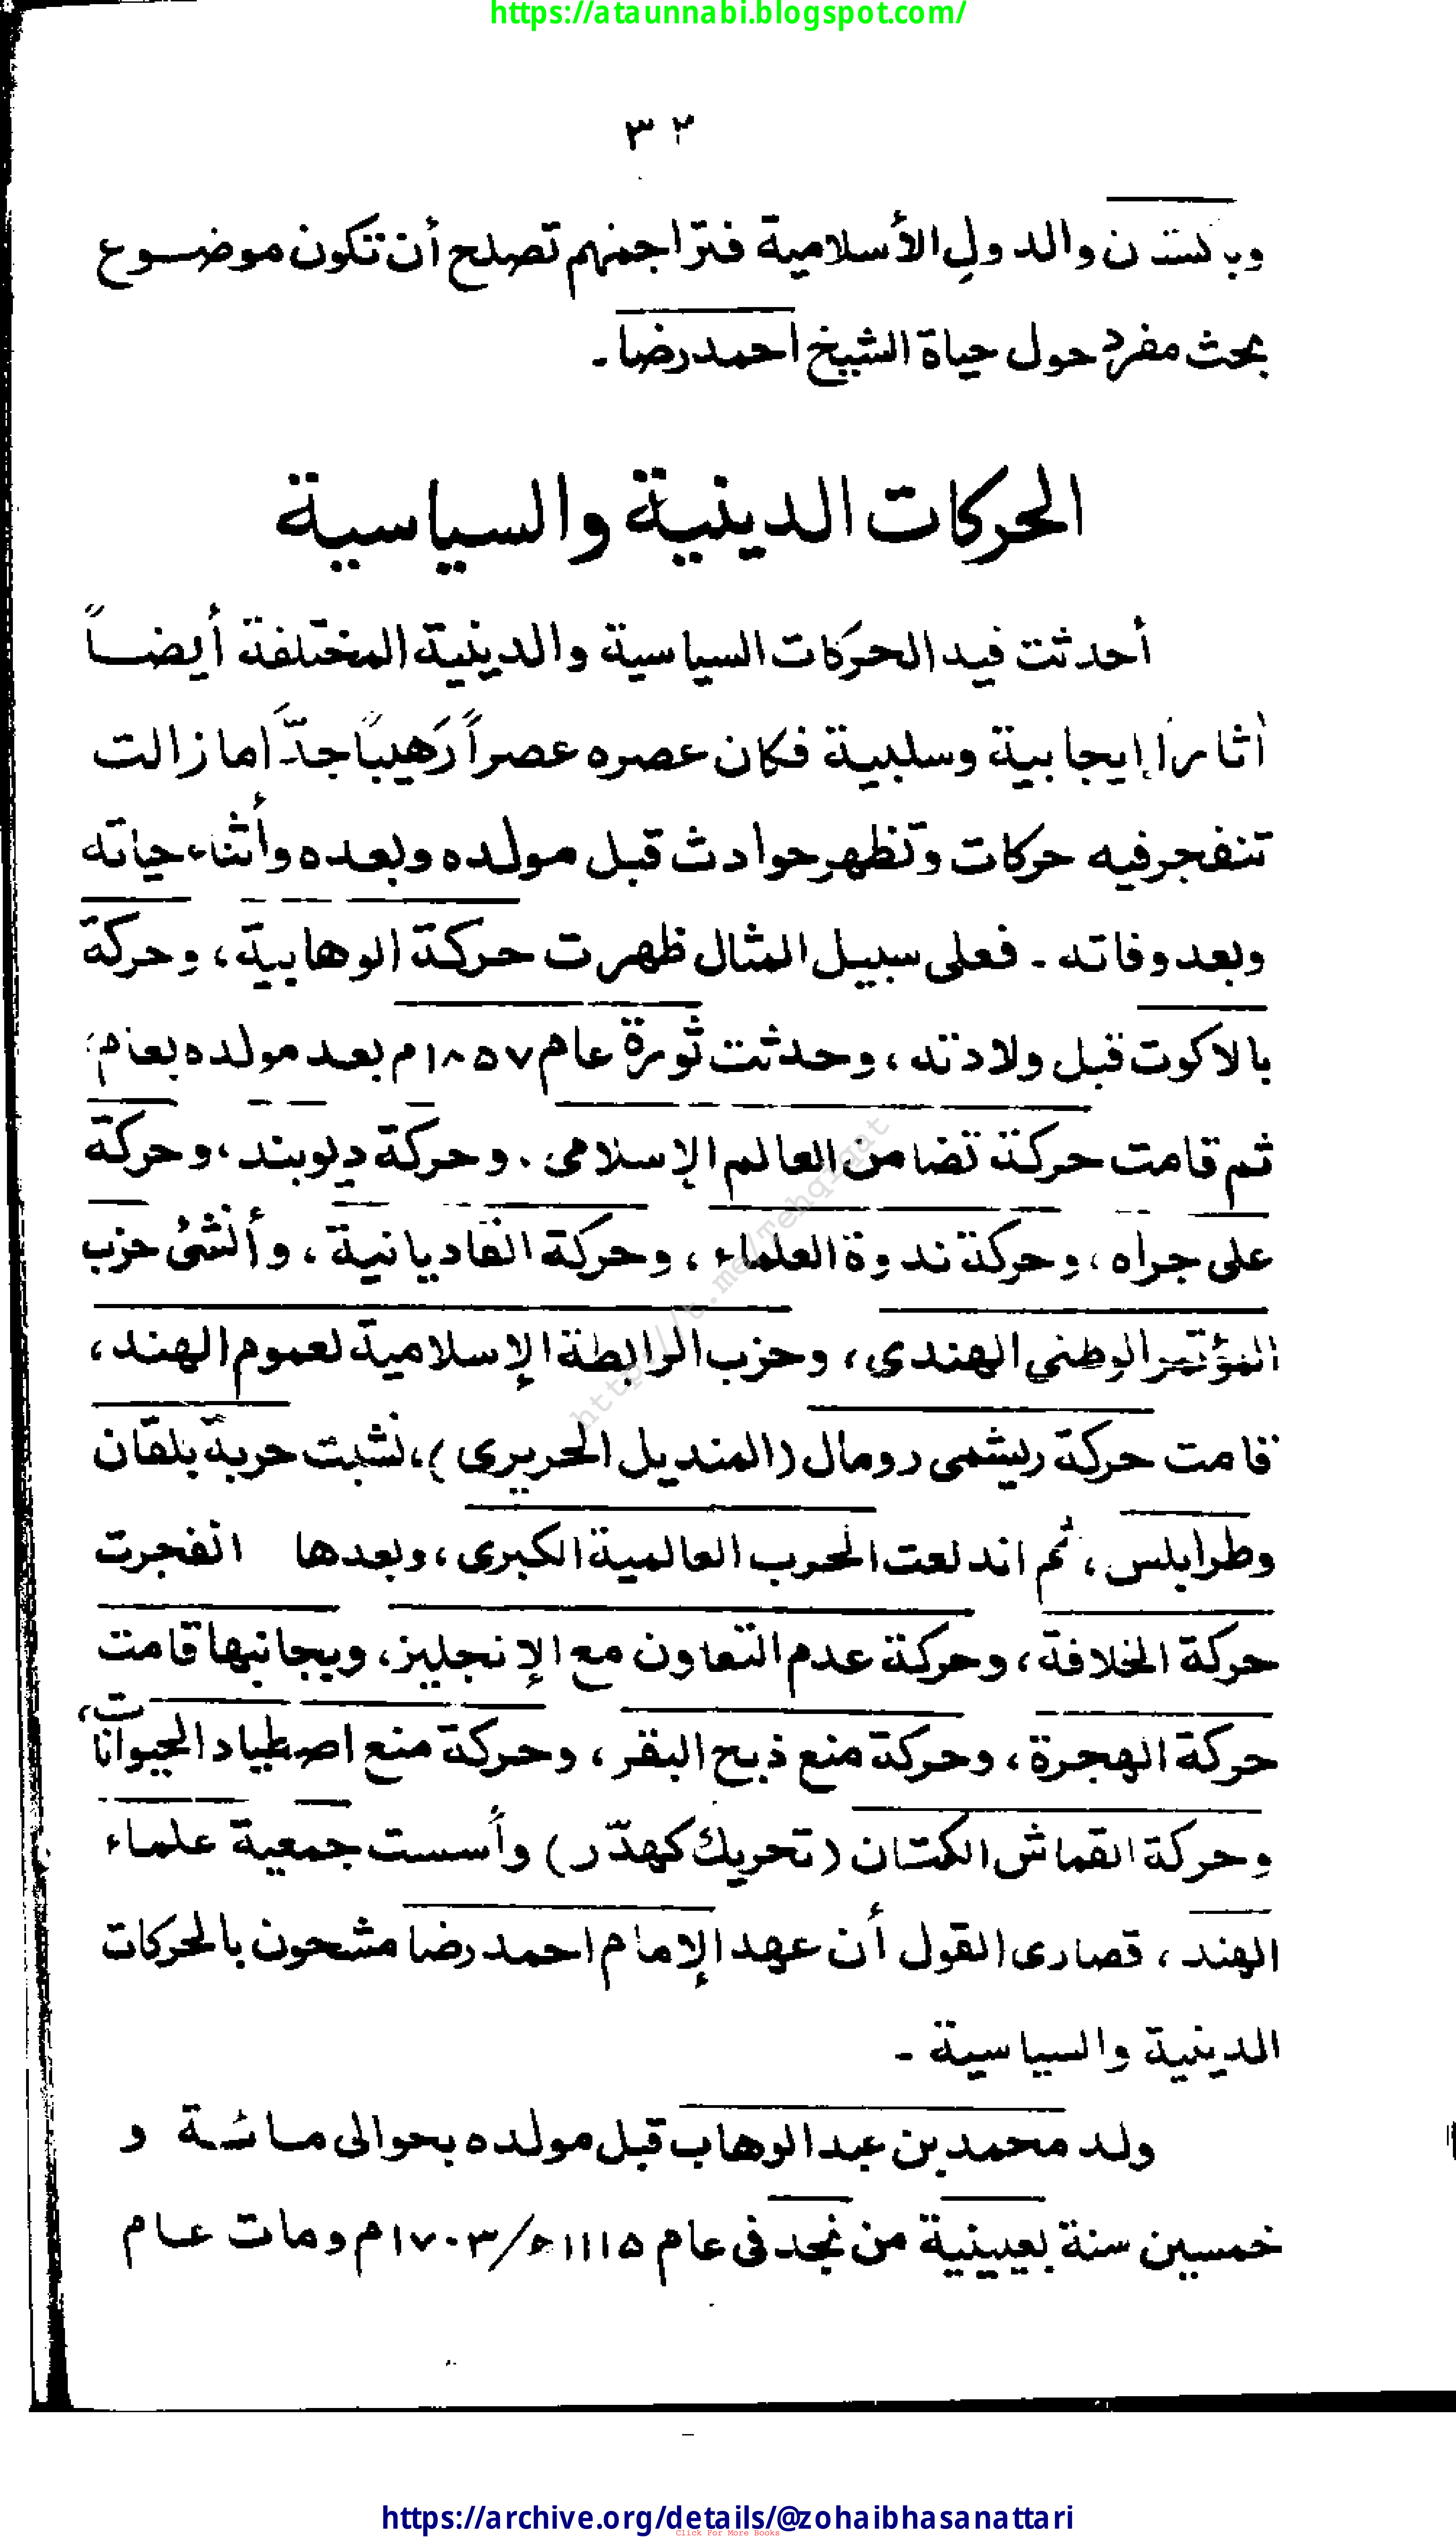 https://ataunnabi.blogspot.com/
٣٢
وباكستان والدول الأسلامية فتراجمهم تصلح أن تكون موضوع
بحث مفرد حول حياة الشيخ احمد رضا۔
الحركات الدينية والسياسية
أحدثت فيه الحركات السياسية والدينية المختلفة أيضاً
اٰثاراً إيجابية وسلبية فكان عصره عصراً رَهيباً جدّاً ما زالت
تنفجر فيه حركات وتظهر حوادث قبل مولده وبعده وأثناء حياته
وبعد وفاته ۔ فعلى سبيل المثال ظهرت حركة الوهابية، وحركة
بالاكوت قبل ولادته، وحدثت ثورة عام ١٨٥٧م بعد مولده بعام؛
ثم قامت حركة تضامن العالم الإسلامى. وحركة ديوبند، وحركة
على جراه، وحركة ندوة العلماء، وحركة القاديانية، وأنشئ حزب
المؤتمر الوطني الهندى، وحزب الرابطة الإسلامية لعموم الهند،
قامت حركة ريشمى رومال (المنديل الحريرى)، نشبت حربة بلقان
وطرابلس، ثم اندلعت الحرب العالمية الكبرى، وبعدها انفجرت
حركة الخلافة، وحركة عدم التعاون مع الإنجليز، وبجانبها قامت
حركة الهجرة، وحركة منع ذبح البقر، وحركة منع اصطياد الحيوانات،
وحركة القماش الكتان (تحريك كهدّر) وأسست جمعية علماء
الهند، قصارى القول أن عهد الإمام احمد رضا مشحون بالحركات
الدينية والسياسية ۔
ولد محمد بن عبد الوهاب قبل مولده بحوالى مائة و
خمسين سنة بعيينية من نجد فى عام ١١١٥ھ/١٧٠٣م ومات عام
http://t.me/Tehqiqat
https://archive.org/details/@zohaibhasanattari
Click For More Books